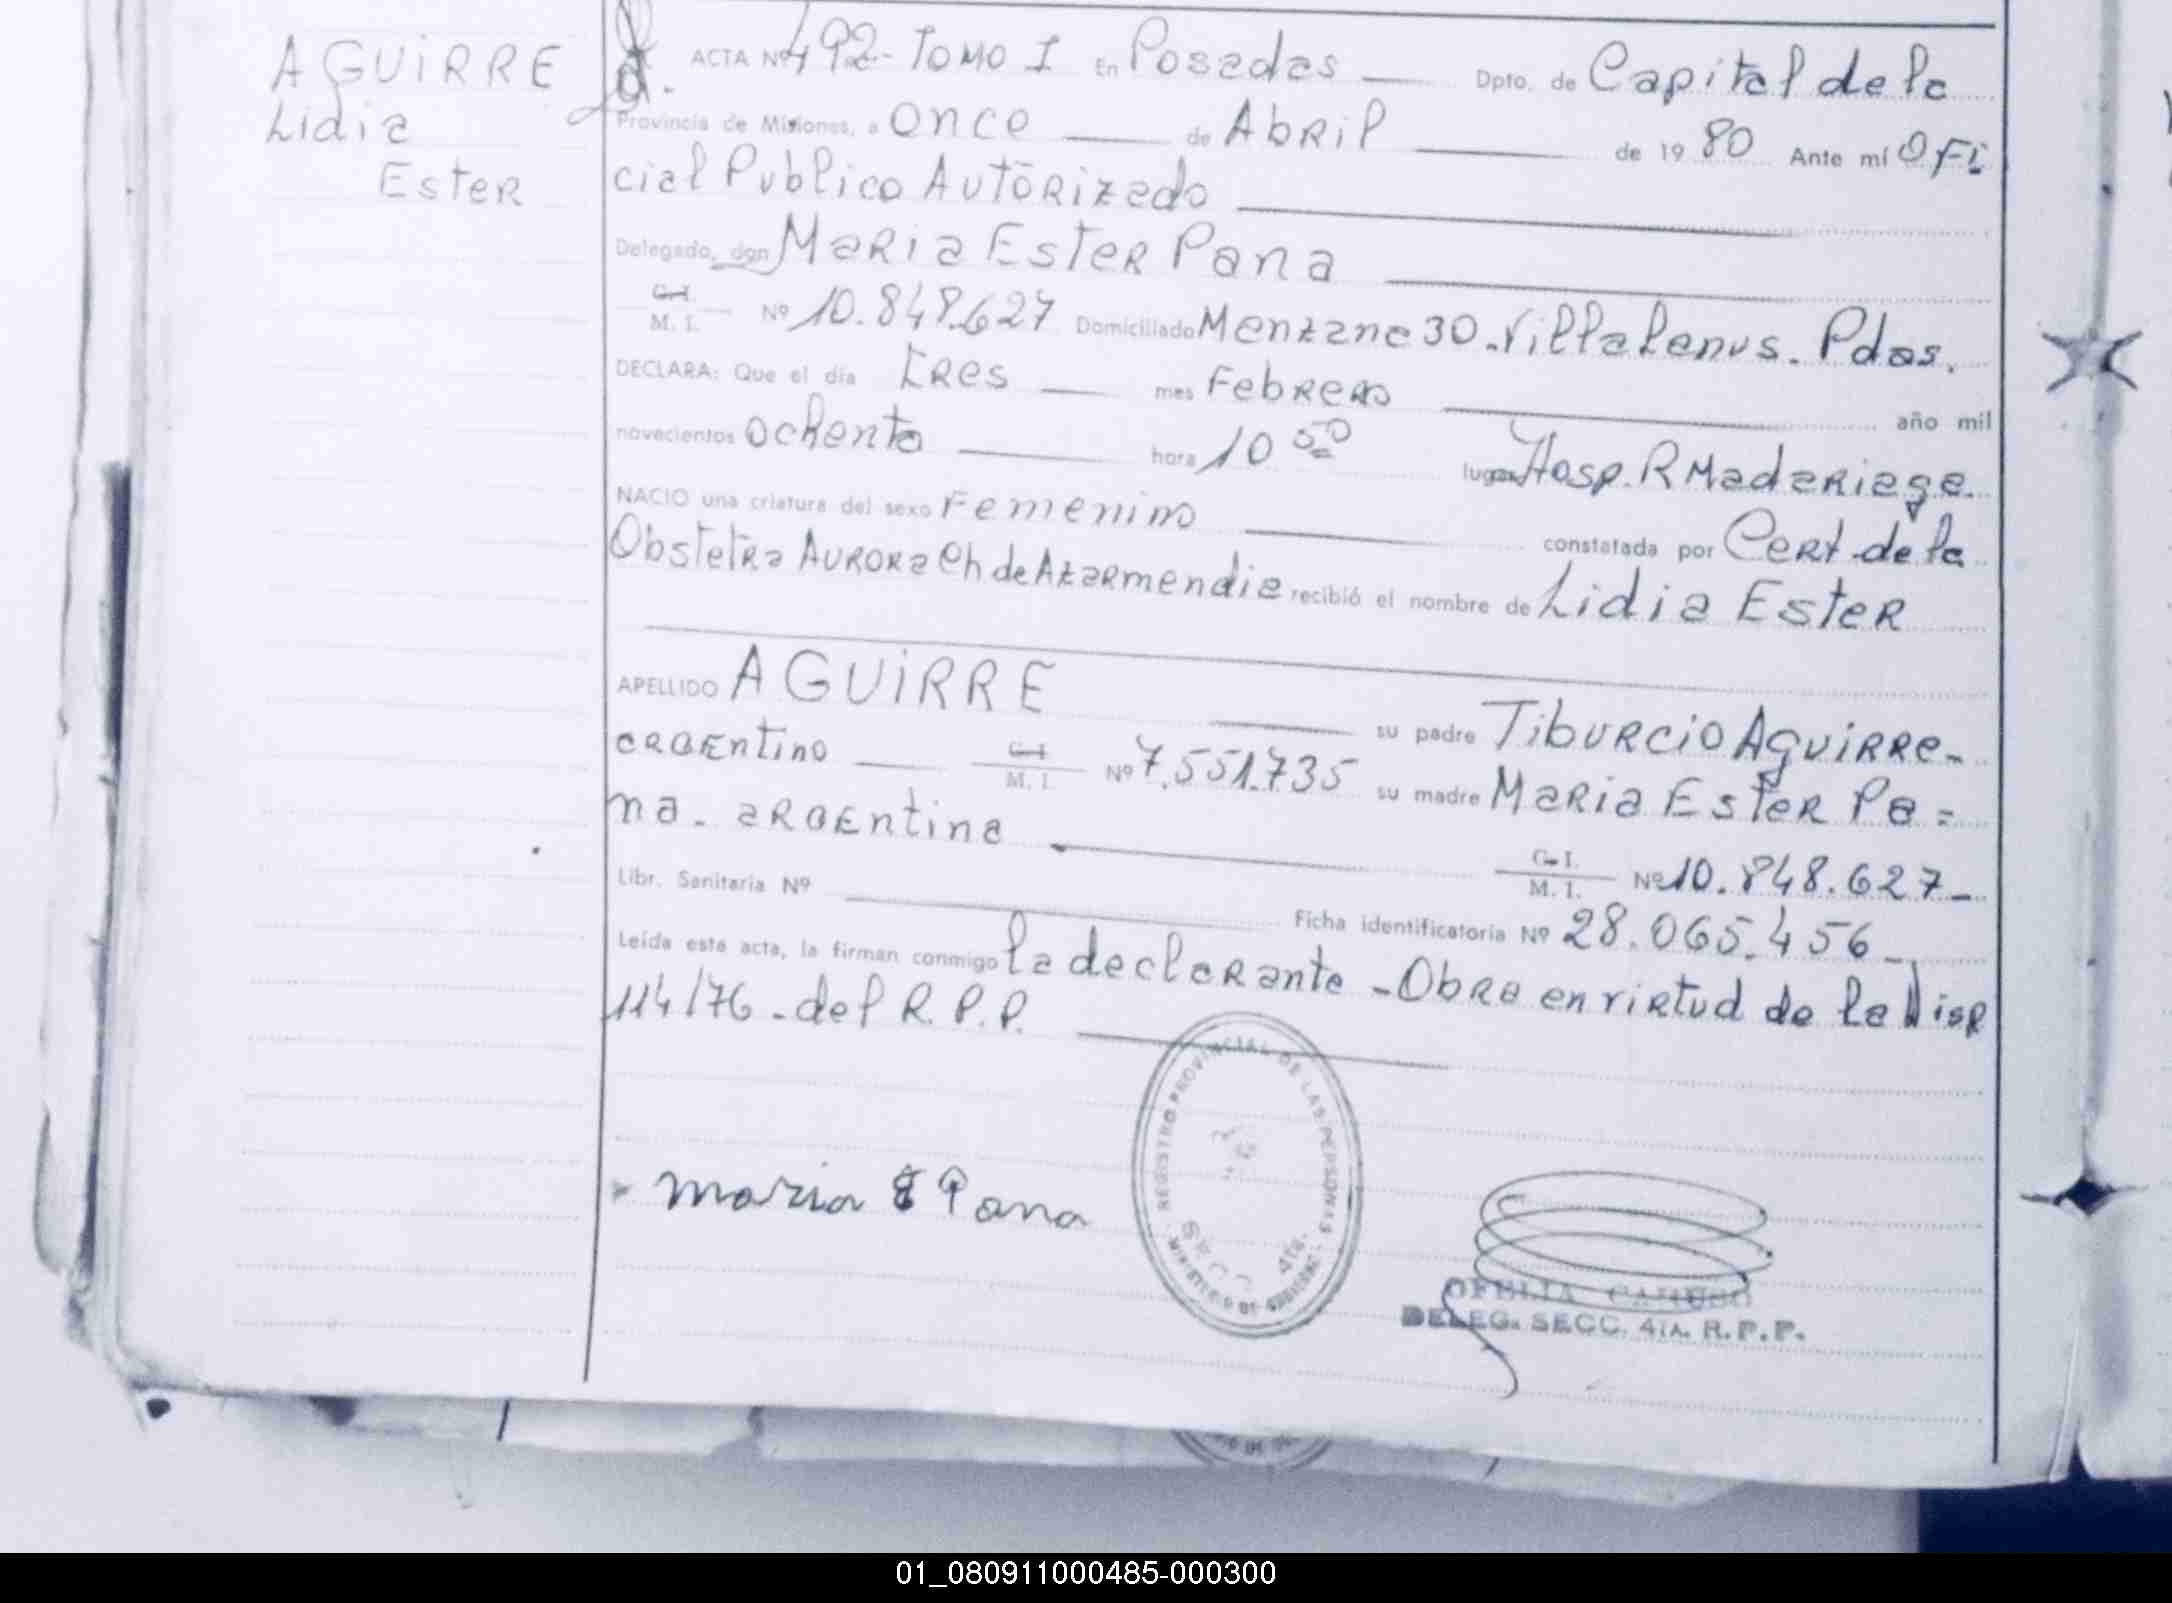 AGUIRRE
Lidia
Ester
ACTA Nº 492- TOMO I En Posadas Dpto. de Capital de la
Provincia de Misiones, a once de Abril de 1980 Ante mí Ofi
cial Publico Autorizado
Delegado, don Maria Ester Pana
C.I.
M. I. Nº 10.848.627 Domiciliado Manzana 30.Villalanus. Pdas.
DECLARA: Que el día tres mes Febrero año mil
novecientos ochenta hora 10 50 lugar Hosp. R Madariaga.
NACIO una criatura del sexo Femenino constatada por Cert de la
Obstetra Aurora Ch de Azarmendia recibió el nombre de Lidia Ester
APELLIDO AGUIRRE su padre Tiburcio Aguirre-
argentino C.I. M. I. Nº 7.551.735 su madre Maria Ester Pa=
na. argentina C.I. M. I. Nº 10.848.627-
Libr. Sanitaria Nº Ficha identificatoria Nº 28.065.456-
Leída esta acta, la firman conmigo la declarante - Obra en virtud de la Disp
114/76 - del R. P. P.
Maria E Pana
REGISTRO PROVINCIAL DE LAS PERSONAS
MINISTERIO DE GOBIERNO
SECC 4TA.
OFELIA CARUSO
DELEG. SECC. 4TA. R.P.P.
01_080911000485-000300